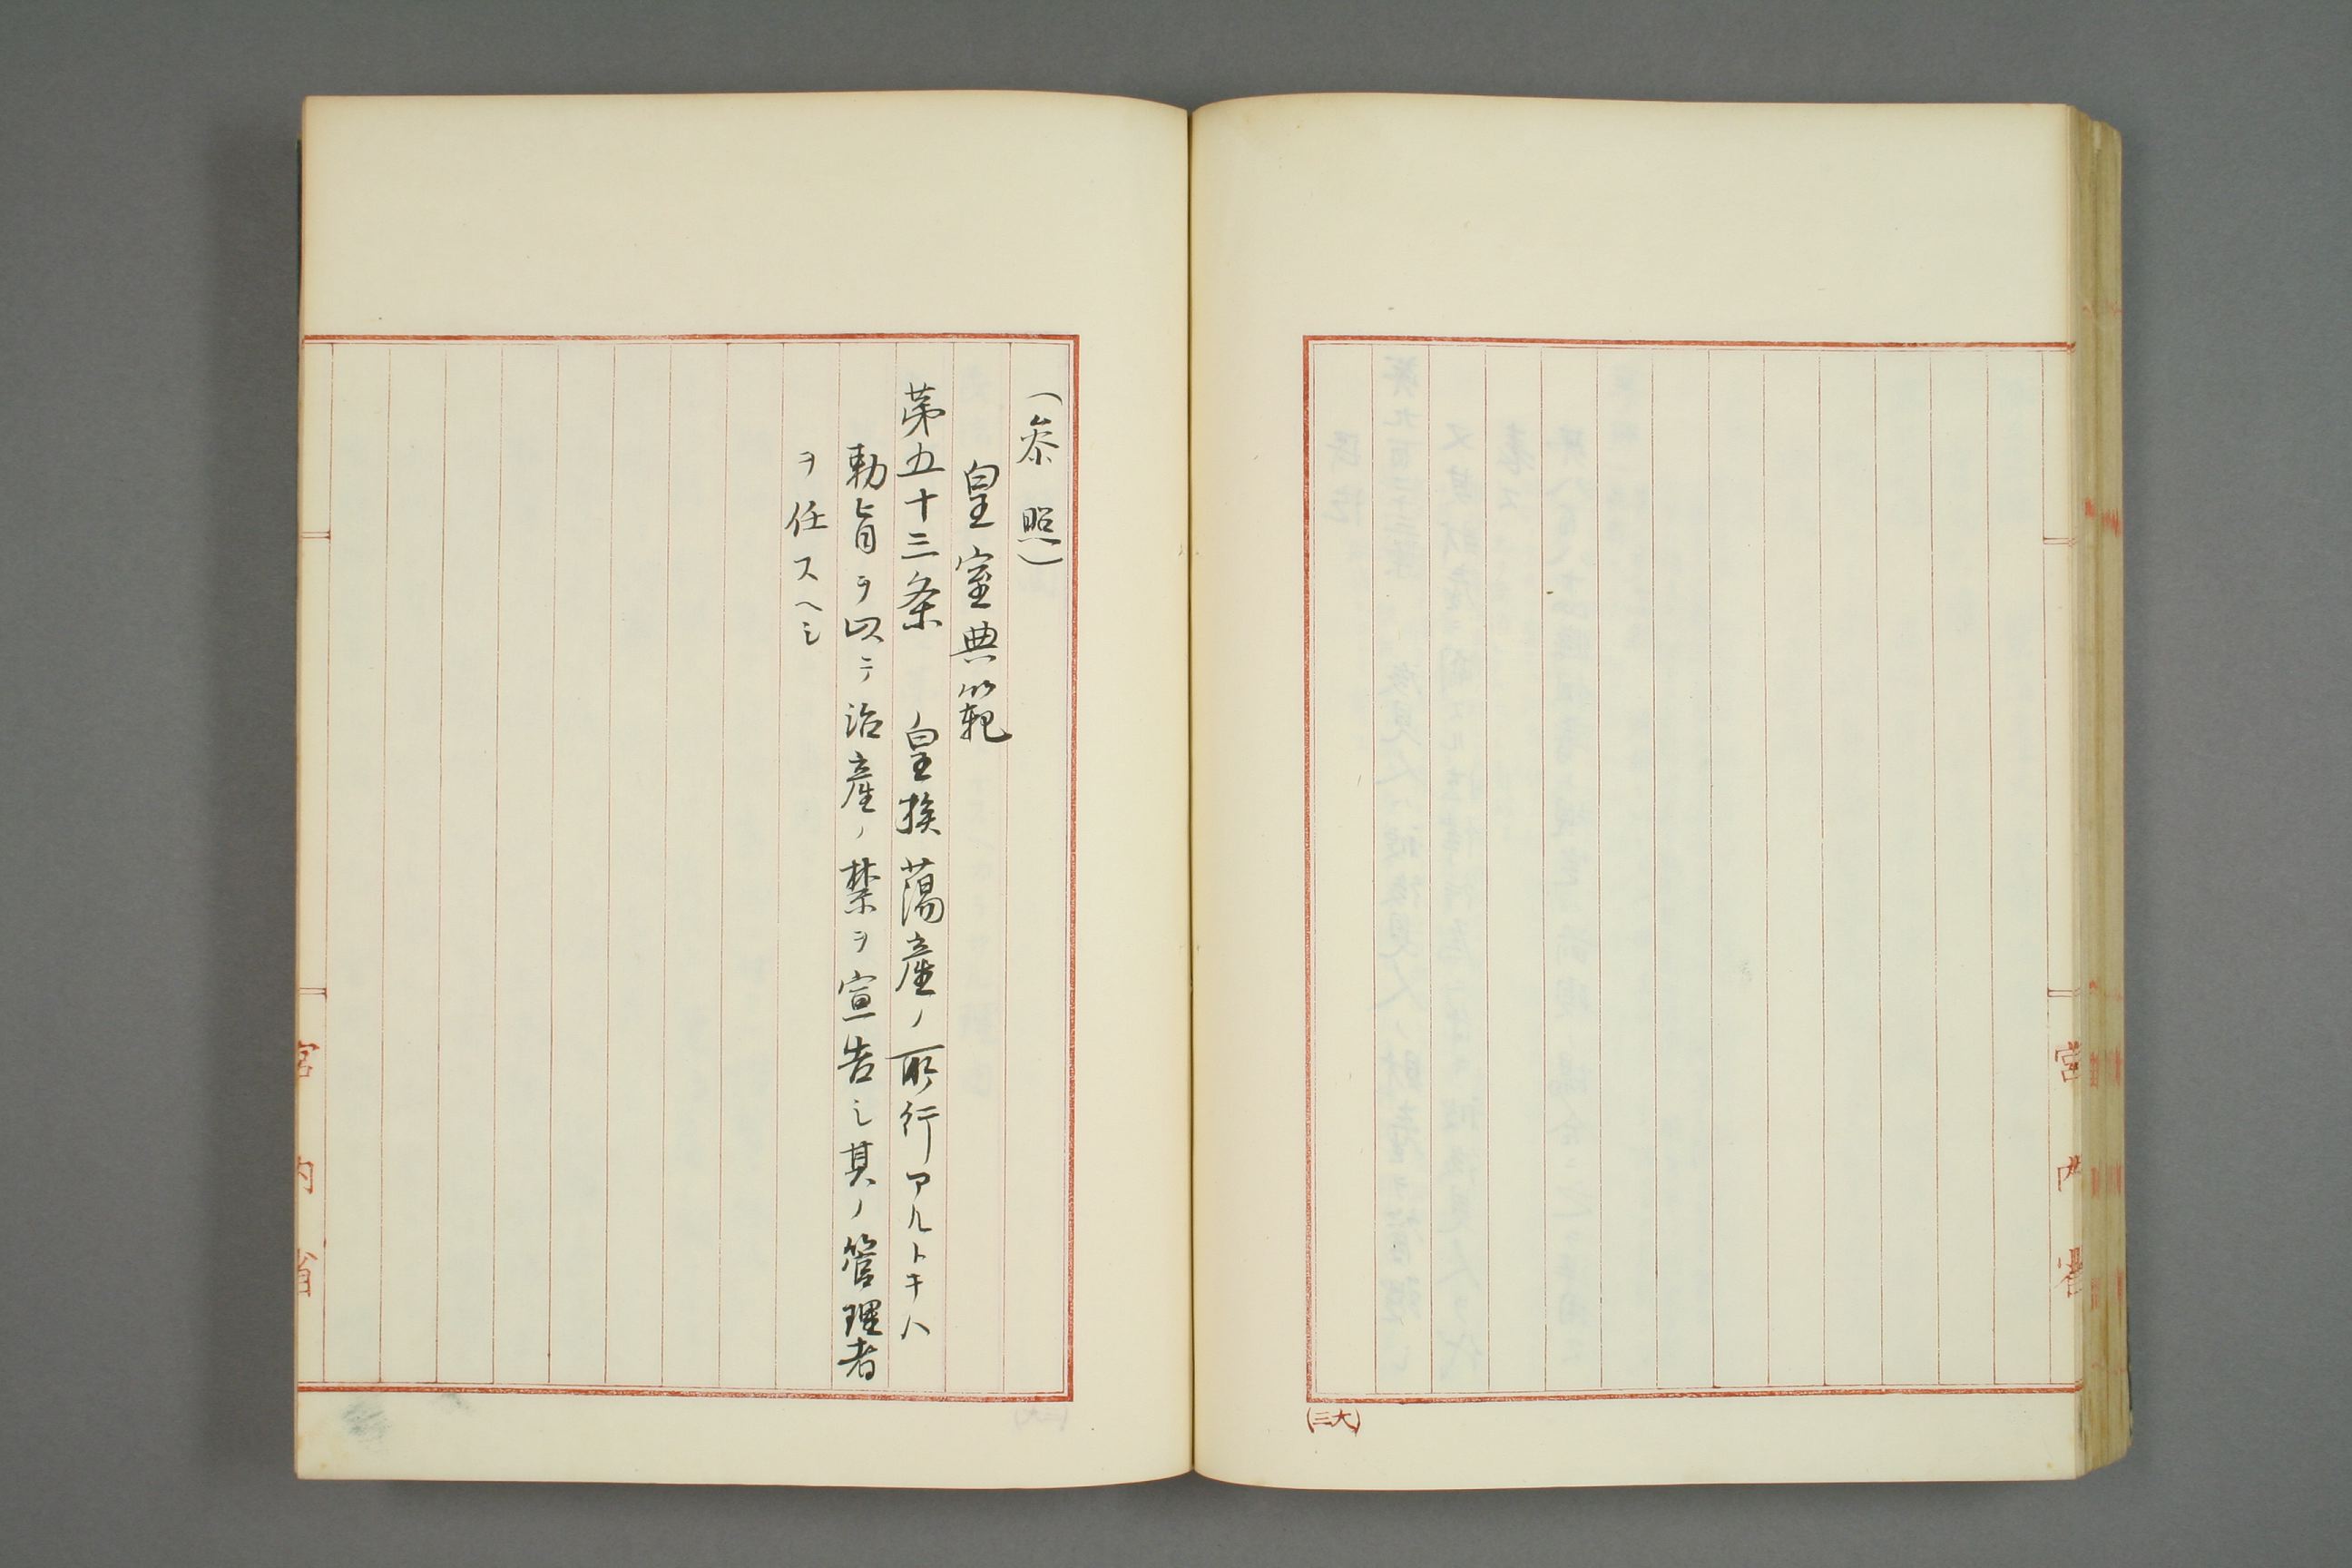 宮内省
(大三)
(参照)
皇室典範
第五十三条 皇族蕩産ノ所行アルトキハ
勅旨ヲ以テ治産ノ禁ヲ宣告シ其ノ管理者
ヲ任スヘシ
宮内省